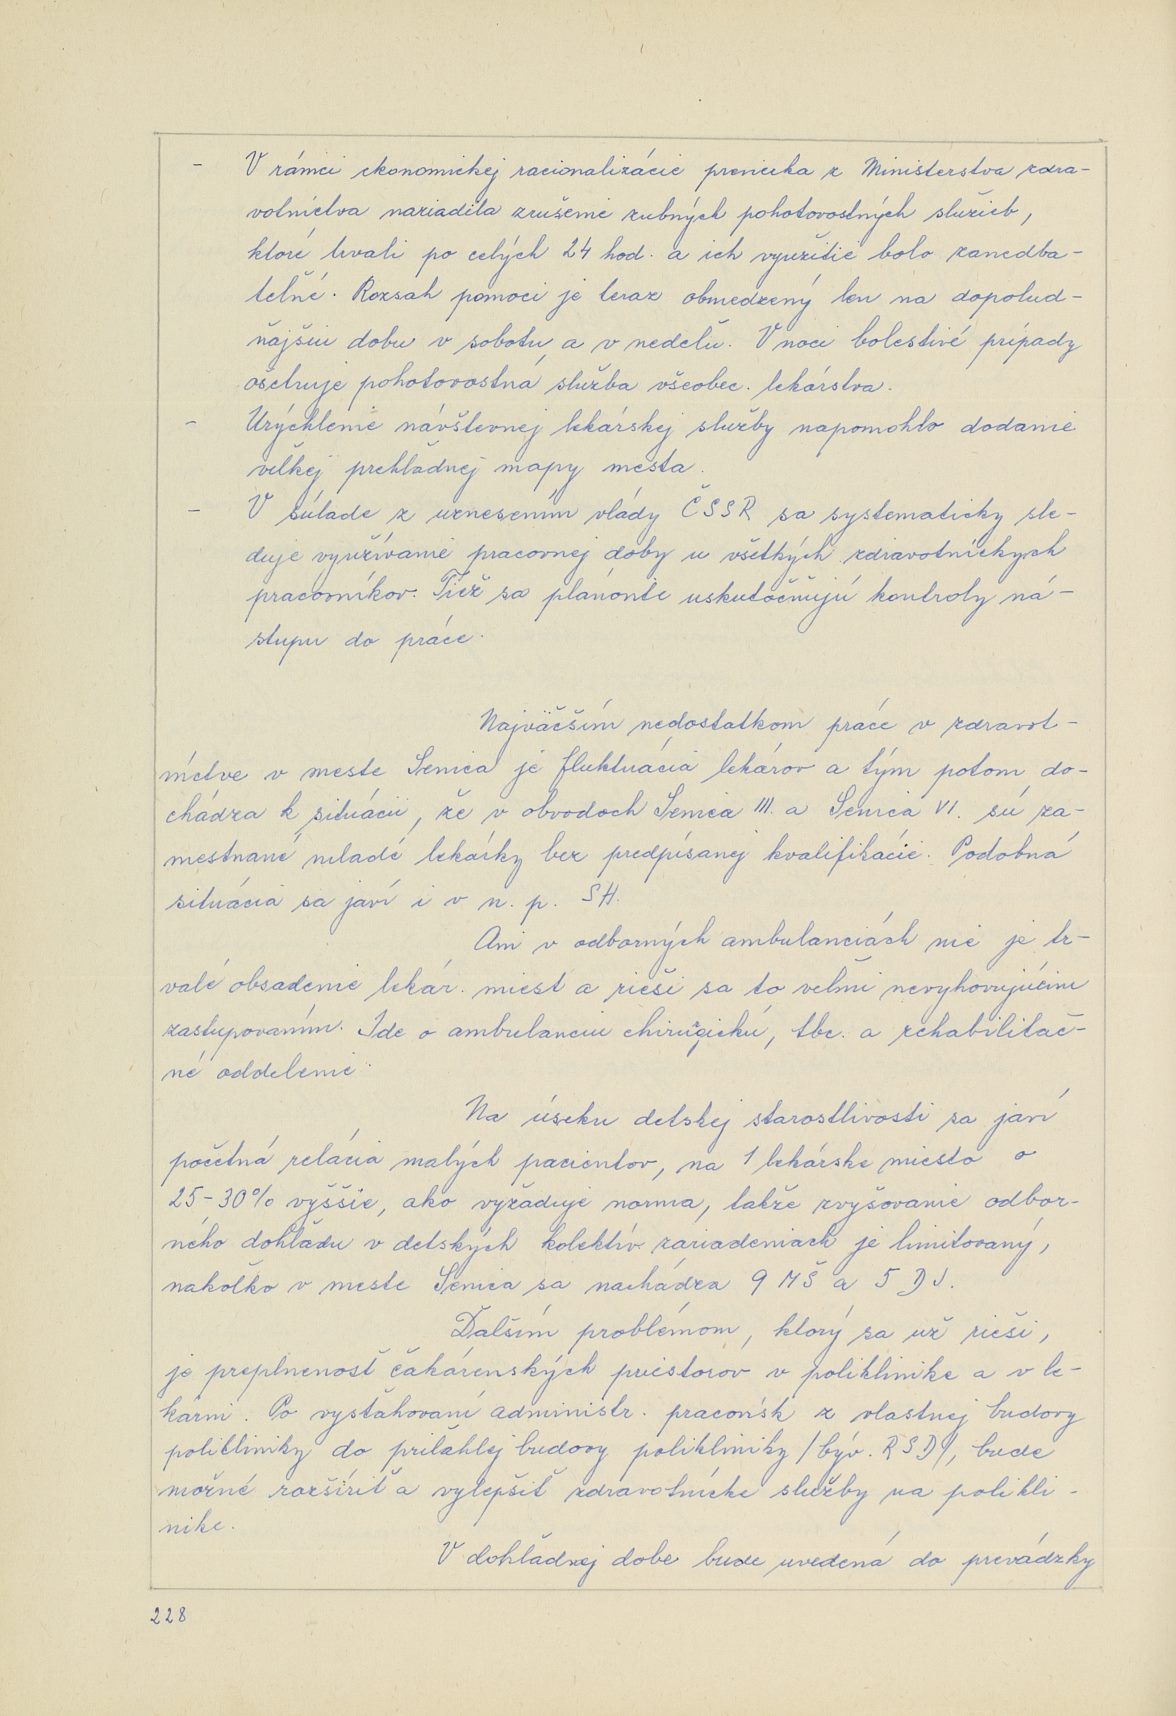 - V rámci ekonomickej racionalizácie previerka z Ministerstva zdra-
votníctva nariadila zrušenie zubných pohotovostných služieb,
ktoré trvali po celých 24 hod. a ich využitie bolo zanedba-
teľné. Rozsah pomoci je teraz obmedzený len na dopolud-
ňajšiu dobu v sobotu a v nedeľu. V noci bolestivé prípady
ošetruje pohotovostná služba všeobec. lekárstva.
- Urýchlenie návštevnej lekárskej služby napomohlo dodanie
veľkej prehľadnej mapy mesta.
- V súlade z uznesením vlády ČSSR sa systematicky sle-
duje využívanie pracovnej doby u všetkých zdravotníckych
pracovníkov. Tiež sa plánovite uskutočňujú kontroly ná-
stupu do práce.
Najväčším nedostatkom práce v zdravot-
níctve v meste Senica je fluktuácia lekárov a tým potom do-
chádza k situácii, že v obvodoch Senica III. a Senica VI. sú za-
mestnané mladé lekárky bez predpísanej kvalifikácie. Podobná
situácia sa javí i v n. p. SH.
Ani v odborných ambulanciách nie je tr-
valé obsadenie lekár. miest a rieši sa to veľmi nevyhovujúcim
zastupovaním. Ide o ambulanciu chirurgickú, tbc. a rehabilitač-
né oddelenie.
Na úseku detskej starostlivosti sa javí
početná relácia malých pacientov, na 1 lekárske miesto o
25-30% vyššie, ako vyžaduje norma, takže zvyšovanie odbor-
ného dohľadu v detských kolektív. zariadeniach je limitovaný,
nakoľko v meste Senica sa nachádza 9 MŠ a 5 DJ.
Ďalším problémom, ktorý sa už rieši,
je preplnenosť čakárenských priestorov v poliklinike a v le-
kárni. Po vysťahovaní administr. pracovísk z vlastnej budovy
polikliniky do priľahlej budovy polikliniky /býv. RSD/, bude
možné rozšíriť a vylepšiť zdravotnícke služby na polikli-
nike.
V dohľadnej dobe bude uvedená do prevádzky
228